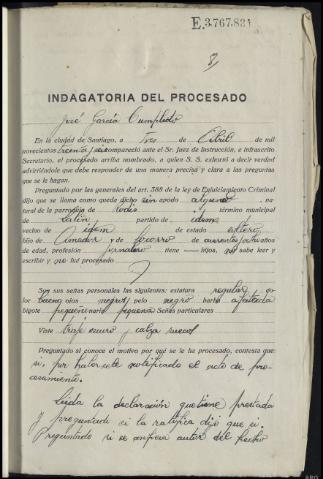 E.3.767.881
INDAGATORIA DEL PROCESADO
José García Cumplido
En la ciudad de Santiago, a tres de Abril de mil
novecientos treinta y seis compareció ante el Sr. Juez de Instrucción, e infrascrito
Secretario, el procesado arriba nombrado, a quien S. S. exhortó a decir verdad
advirtiéndole que debe responder de una manera precisa y clara a las preguntas
que se le hagan.
Preguntado por las generales del art. 388 de la ley de Enjuiciamiento Criminal
dijo que se llama como queda dicho sin apodo alguno na-
tural de la parroquia de término municipal
de partido de idem
vecino de idem de estado soltero
hijo de Amador y de Socorro de años
de edad, profesión jornalero tiene hijos, no sabe leer y
escribir y no fué procesado
Son sus señas personales las siguientes: estatura regular co-
lor bueno ojos negros pelo negro barba afeitada
bigote pequeño nariz pequeña Señas particulares
Viste traje oscuro y calza
Preguntado si conoce el motivo por qué se le ha procesado, contesta que
si, por habérsele notificado el auto de pro-
cesamiento.
Leída la declaración que tiene prestada
y preguntado si la ratifica dijo que si.
Preguntado si se confiesa autor del hecho